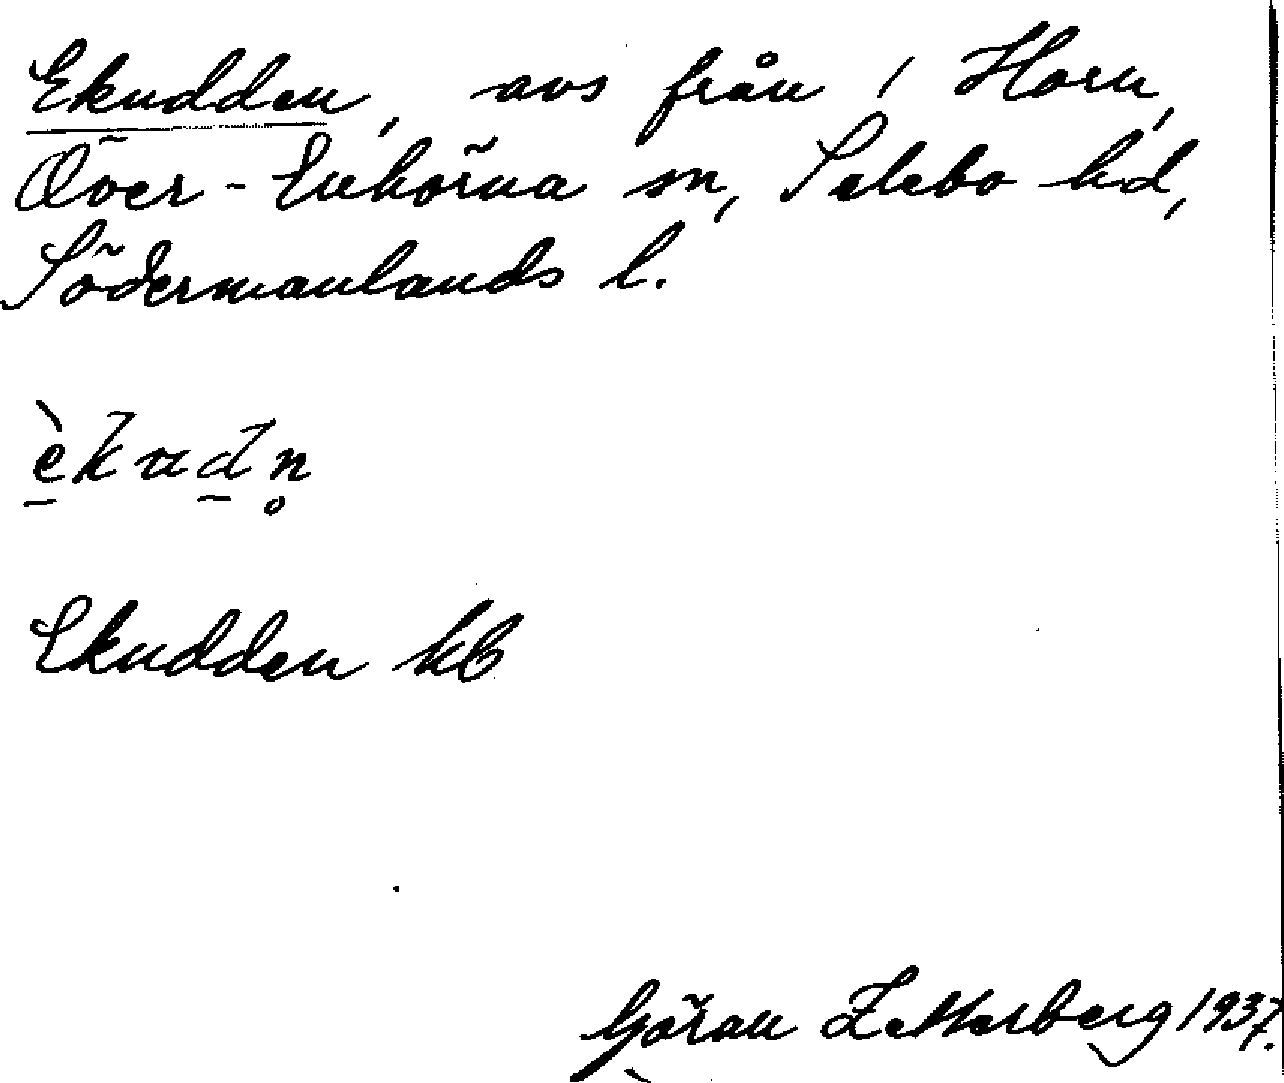 Ekudden, avs från 1 Horn,
Över-Enhörna sn, Selebo hd,
Södermanlands l.
èkudn̥
Ekudden kb
Göran Zetterberg 1937.